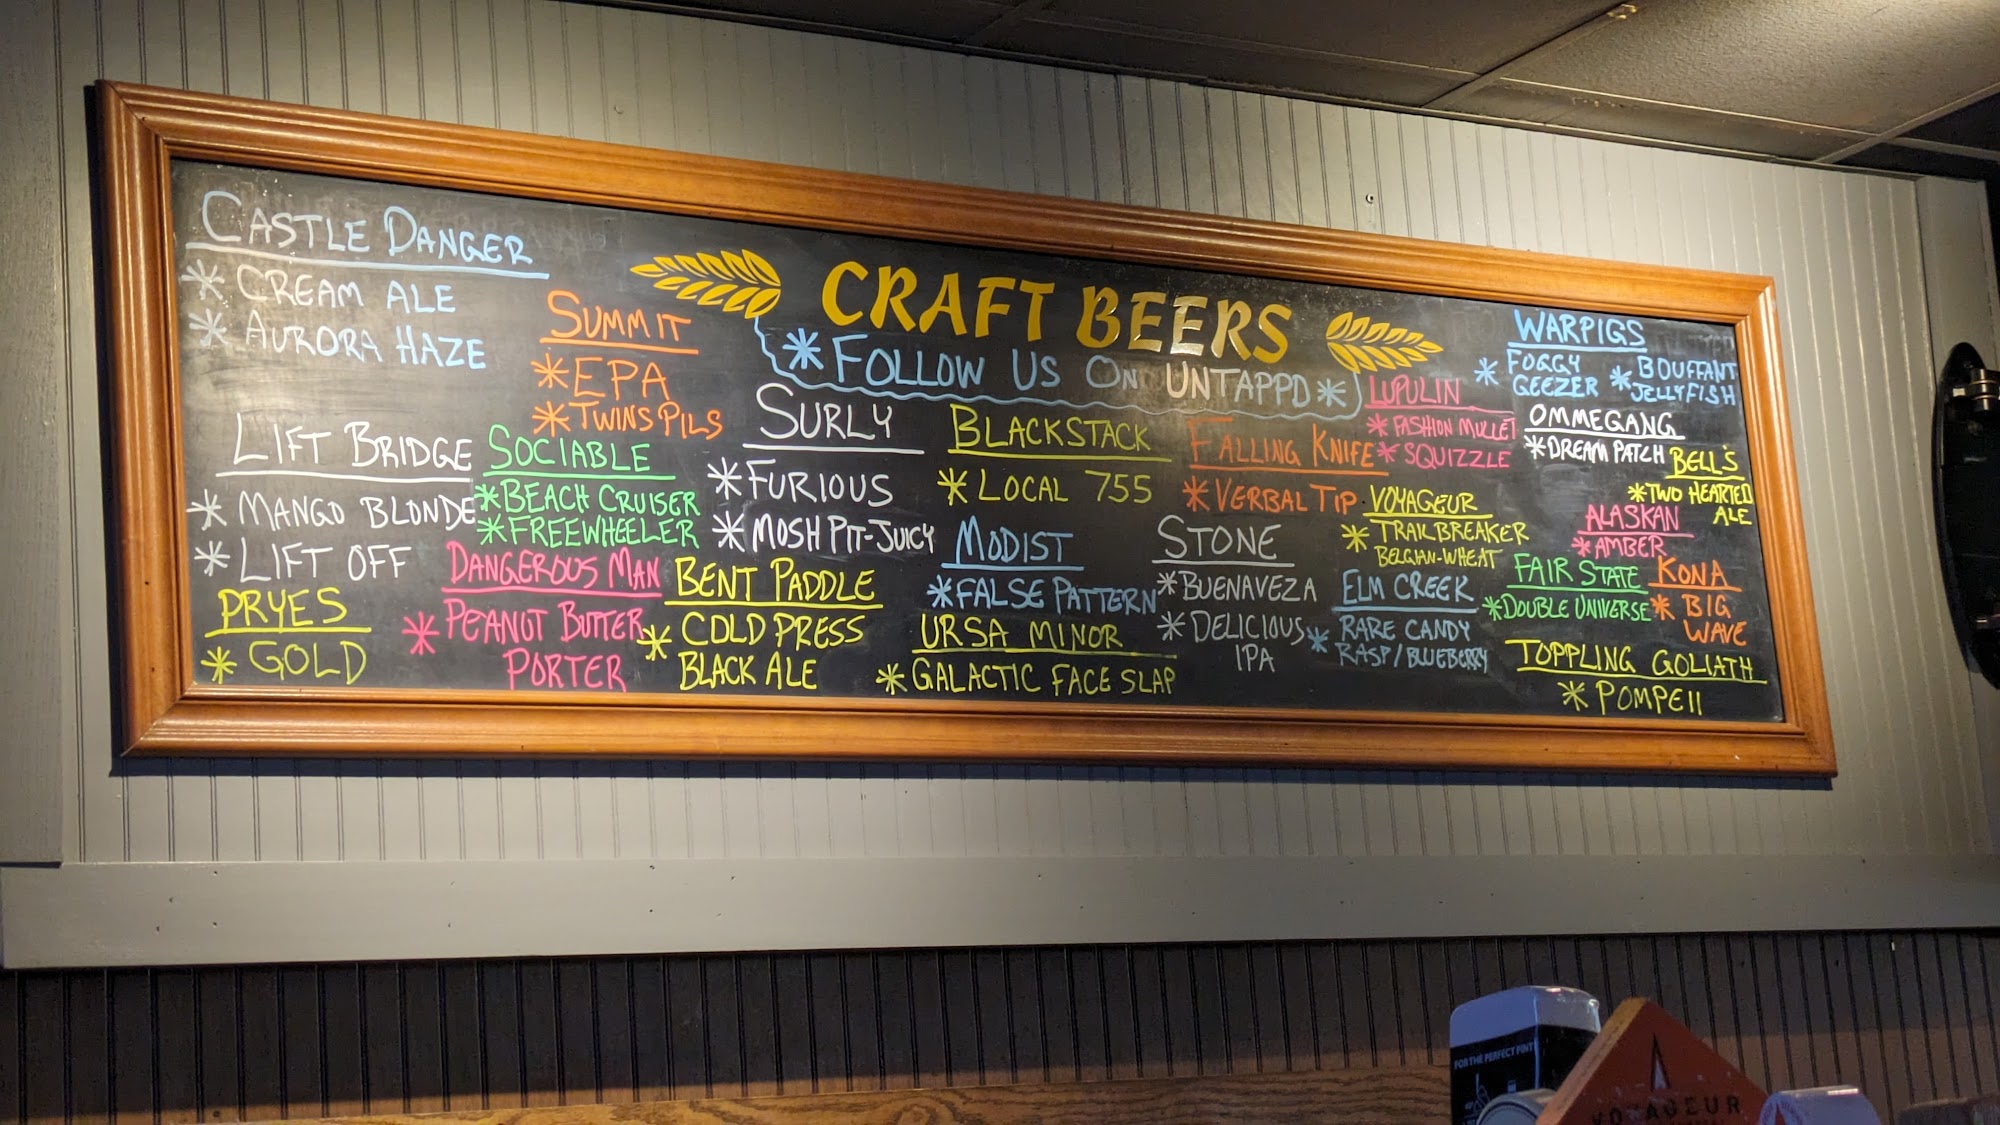 CRAFT BEERS
* FOLLOW US ON UNTAPPD *
CASTLE DANGER
* CREAM ALE
* AURORA HAZE
SUMMIT
* EPA
* TWINS PILS
LIFT BRIDGE
* MANGO BLONDE
* LIFT OFF
SOCIABLE
* BEACH CRUISER
* FREEWHEELER
PRYES
* GOLD
DANGEROUS MAN
* PEANUT BUTTER
PORTER
SURLY
* FURIOUS
* MOSH PIT-JUICY
BENT PADDLE
* COLD PRESS
BLACK ALE
BLACKSTACK
* LOCAL 755
MODIST
* FALSE PATTERN
URSA MINOR
* GALACTIC FACE SLAP
FALLING KNIFE
* VERBAL TIP
STONE
* BUENAVEZA
* DELICIOUS
IPA
LUPULIN
* FASHION MULLET
* SQUIZZLE
VOYAGEUR
* TRAILBREAKER
BELGIAN-WHEAT
ELM CREEK
* RARE CANDY
RASP/BLUEBERRY
WARPIGS
* FOGGY
GEEZER
* BOUFFANT
JELLYFISH
OMMEGANG
* DREAM PATCH
BELL'S
* TWO HEARTED
ALE
ALASKAN
* AMBER
FAIR STATE
* DOUBLE UNIVERSE
KONA
* BIG
WAVE
TOPPLING GOLIATH
* POMPEII
FOR THE PERFECT PINT
VOYAGEUR